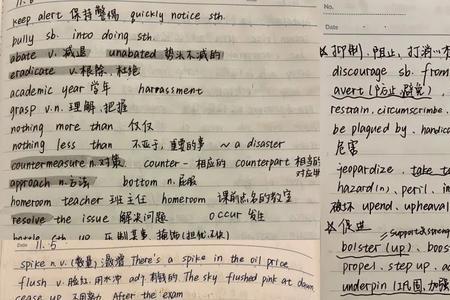 11.6
keep alert 保持警惕 quickly notice sth.
bully sb. into doing sth.
abate v. 减退 unabated 势头不减的
eradicate v.根除、杜绝
academic year 学年 harrassment
grasp v.n. 理解、把握
nothing more than 仅仅
nothing less than 不亚于，重要的事 ~ a disaster
countermeasure n.对策 counter- 相应的 counterpart 相当的
approach n.方法 bottom n.屁股
homeroom teacher 班主任 homeroom 课前点名的教室
resolve the issue 解决问题 occur 发生
Date 11.5
spike n v. (数量) 激增 There's a spike in the oil price
flush v. 脸红、用水冲 adj. 有钱的. The sky flushed pink at dawn
cease up After the exam
No.
Date
抑制、阻止、打消
discourage sb. from
avert (防止、避免)
restrain. circumscribe.
be plagued by. handica
危害
jeopardize. take
hazard(n). peril. im
破坏 upend. upheaval
促进
support & strong
bolster (up). boos
propel. step up. a
underpin (巩固、加强